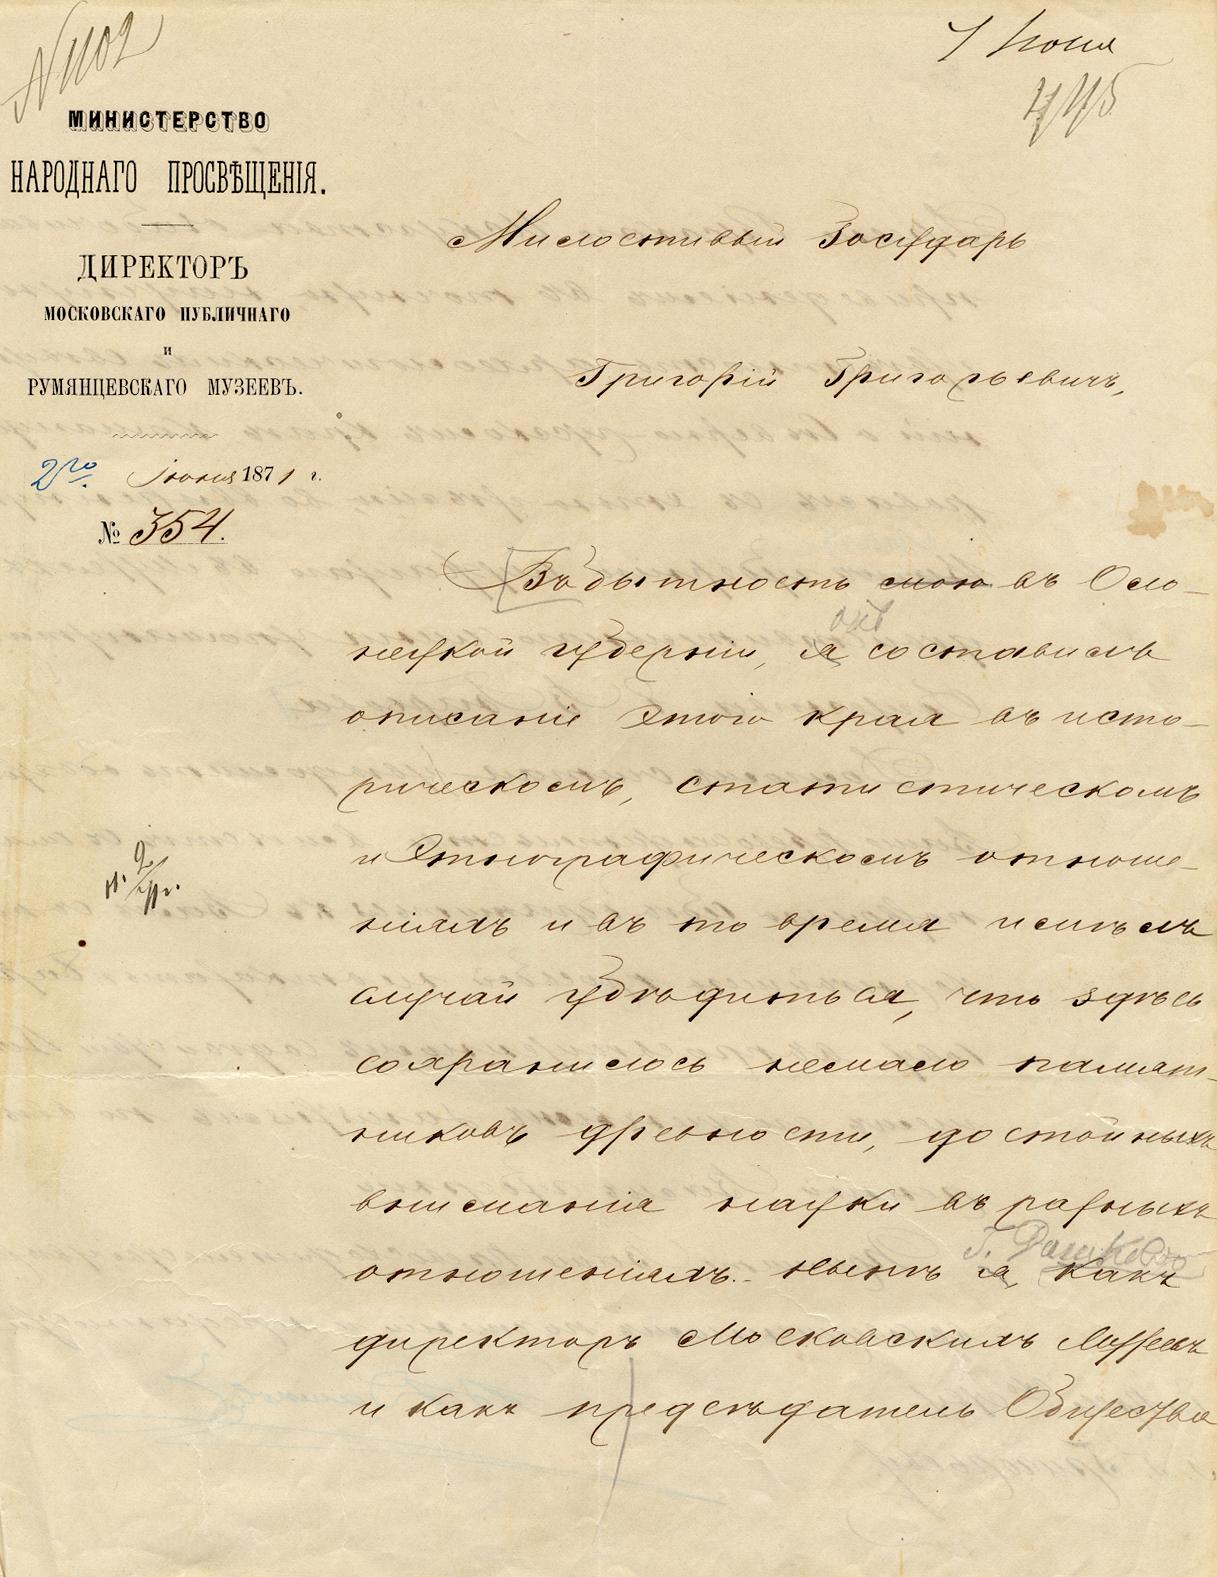 N 1102
7 Июня
445
МИНИСТЕРСТВО
НАРОДНАГО ПРОСВѢЩЕНІЯ.
ДИРЕКТОРЪ
МОСКОВСКАГО ПУБЛИЧНАГО
И
РУМЯНЦЕВСКАГО МУЗЕЕВЪ.
2го Іюня 1871 г.
№ 354.
Милостивый Государь
Григорій Григорьевичъ,
Въ бытность мою въ Оло-
онъ
нецкой губерніи, я составилъ
описаніе этого края въ исто-
рическомъ, статистическомъ
и этнографическомъ отноше-
ніяхъ и въ то время имѣлъ
случай убѣдиться, что здѣсь
сохранилось немало памят-
никовъ древности, достойныхъ
вниманія науки въ разныхъ
Г. Дашковъ
отношеніяхъ. Нынѣ я, какъ
директоръ Московскихъ Музеевъ
и какъ предсѣдатель Общества